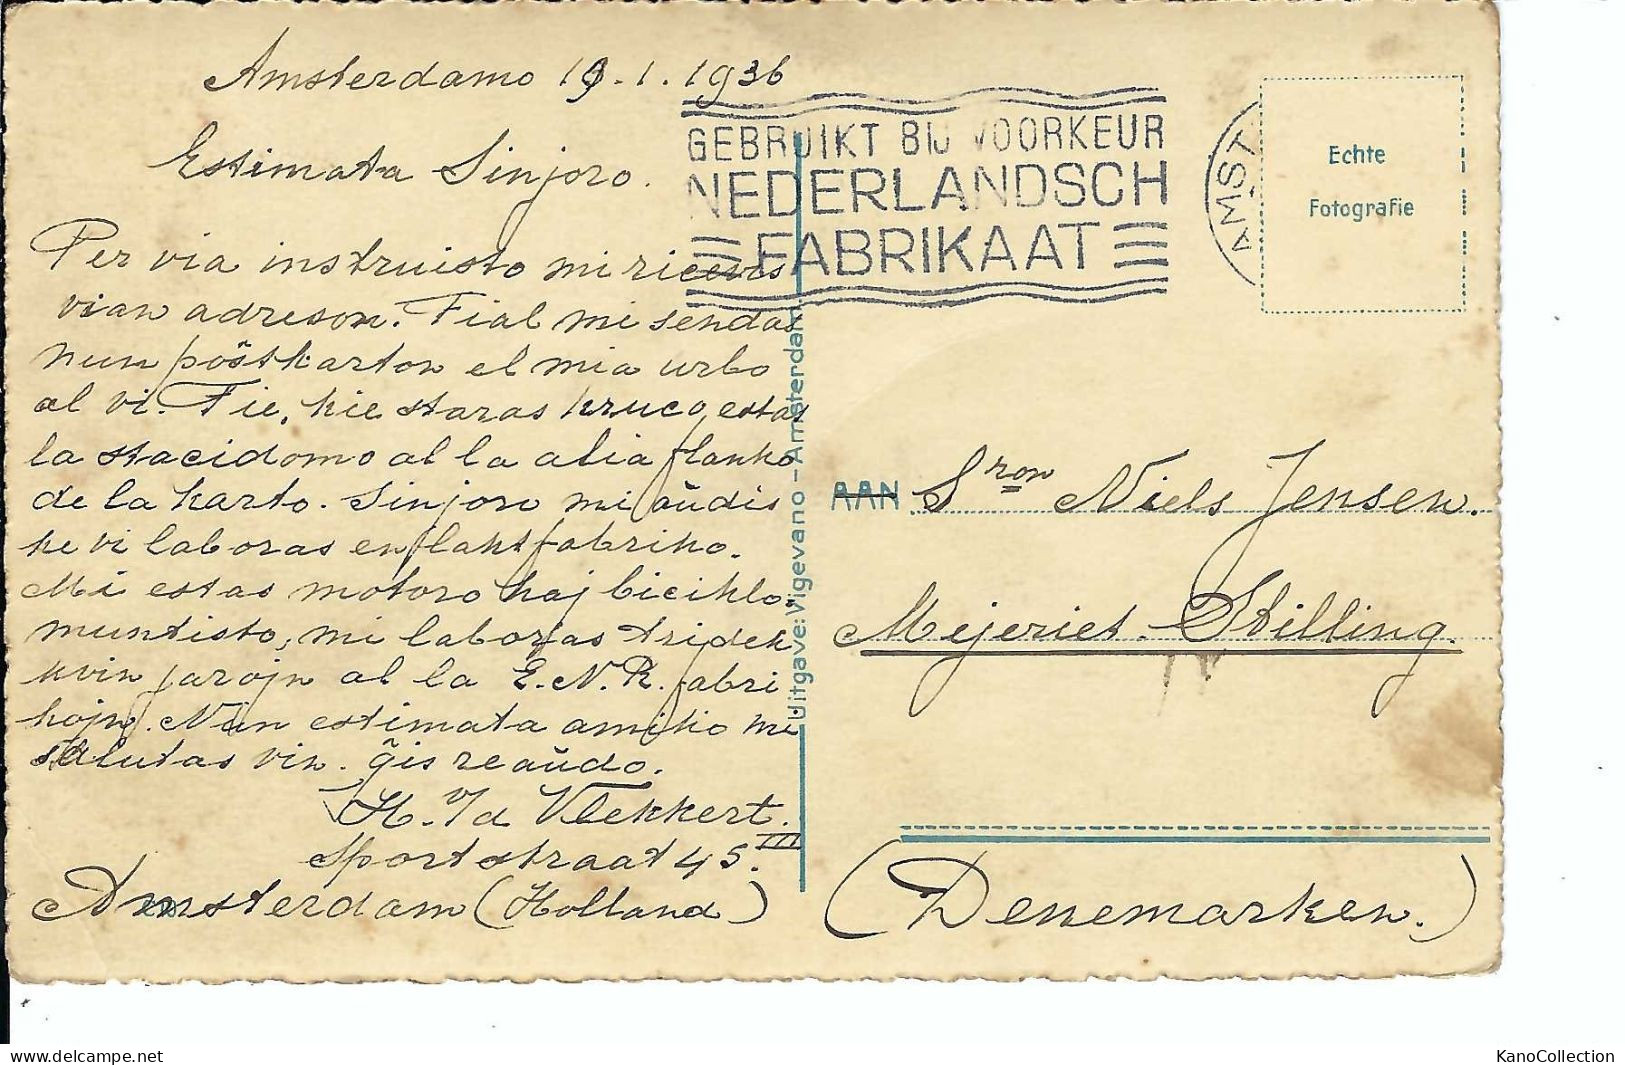 Amsterdamo 19.1.1936
Estimata Sinjoro.
Per via instruisto mi ricevas
vian adreson. Tial mi sendas
nun poŝtkarton el mia urbo
al vi. Tie, kie staras kruco, estas
la stacidomo al la alia flanko
de la karto. Sinjoro mi aŭdis
ke vi laboras en laktfabriko.
Mi estas motoro kaj biciklo
muntisto, mi laboras tridek
kvin jarojn al la E.N.R. fabri
kojn. Nun estimata amiko mi
salutas vin. ĝis reaŭdo.
H. v/d Vlekkert.
Sportstraat 45 III
Amsterdam (Holland)
GEBRUIKT BIJ VOORKEUR
NEDERLANDSCH
FABRIKAAT
AMST
Echte
Fotografie
Uitgave: Vigevano - Amsterdam.
AAN Sron Niels Jensen.
Mejeriet Stilling.
(Denemarken.)
KanoCollection
www.delcampe.net